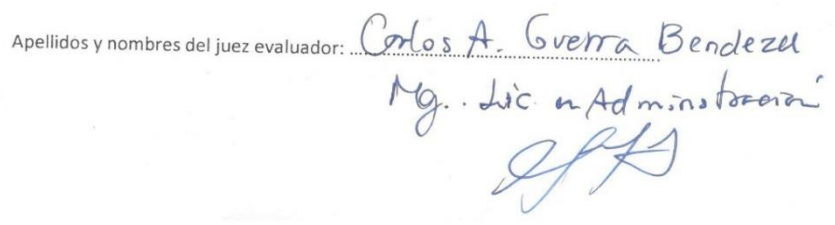 Apellidos y nombres del juez evaluador: Carlos A. Guerra Bendezu
Mg.. Lic en Administración